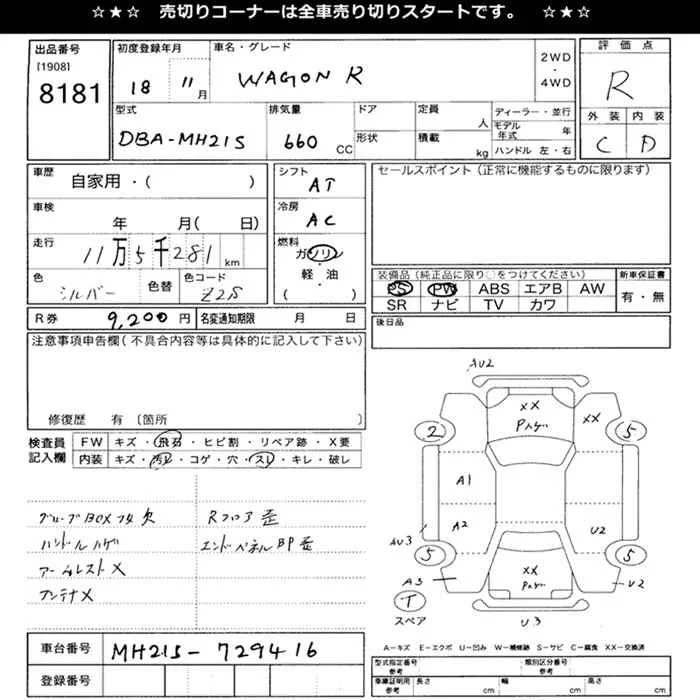 ☆★☆ 売切りコーナーは全車売り切りスタートです。 ☆★☆
出品番号
[1908]
8181
初度登録年月
18 11月
車名・グレード
WAGON R
2WD
・
4WD
評価点
R
外装 内装
C D
型式
DBA-MH21S
排気量
660 CC
ドア
形状
定員
人
積載
kg
ディーラー・並行
モデル年式 年
ハンドル 左・右
車歴
自家用・( )
車検
年 月( 日)
走行
11万5千281 km
色
シルバー 色替
色コード
Z2S
シフト
AT
冷房
AC
燃料
ガソリン
・
軽・油
( )
セールスポイント(正常に機能するものに限ります)
装備品(純正品に限り○をつけてください)
PS PW ABS エアB AW
SR ナビ TV カワ
新車保証書
有・無
R券 9,200円
名変通知期限 月 日
後日品
注意事項申告欄(不具合内容等は具体的に記入して下さい)
修復歴 有 〔箇所 〕
検査員
記入欄
FW キズ・飛石・ヒビ割・リペア跡・X要
内装 キズ・汚レ・コゲ・穴・スレ・キレ・破レ
グローブBOXフタ欠
ハンドルハゲ
アームレストX
アンテナX
Rフロア歪
エンドパネルBP歪
AU2
XX
Pハゲ
XX
2
5
A1
A2
U2
AU3
5
5
A3
XX
Pハゲ
U2
T
スペア
U3
A-キズ E-エクボ U-凹み W-補修跡 S-サビ C-腐食 XX-交換済
車台番号
MH21S-729416
登録番号
型式指定番号
参考
類別区分番号
参考
車庫証明用
参考
長さ
cm
幅
cm
高さ
cm